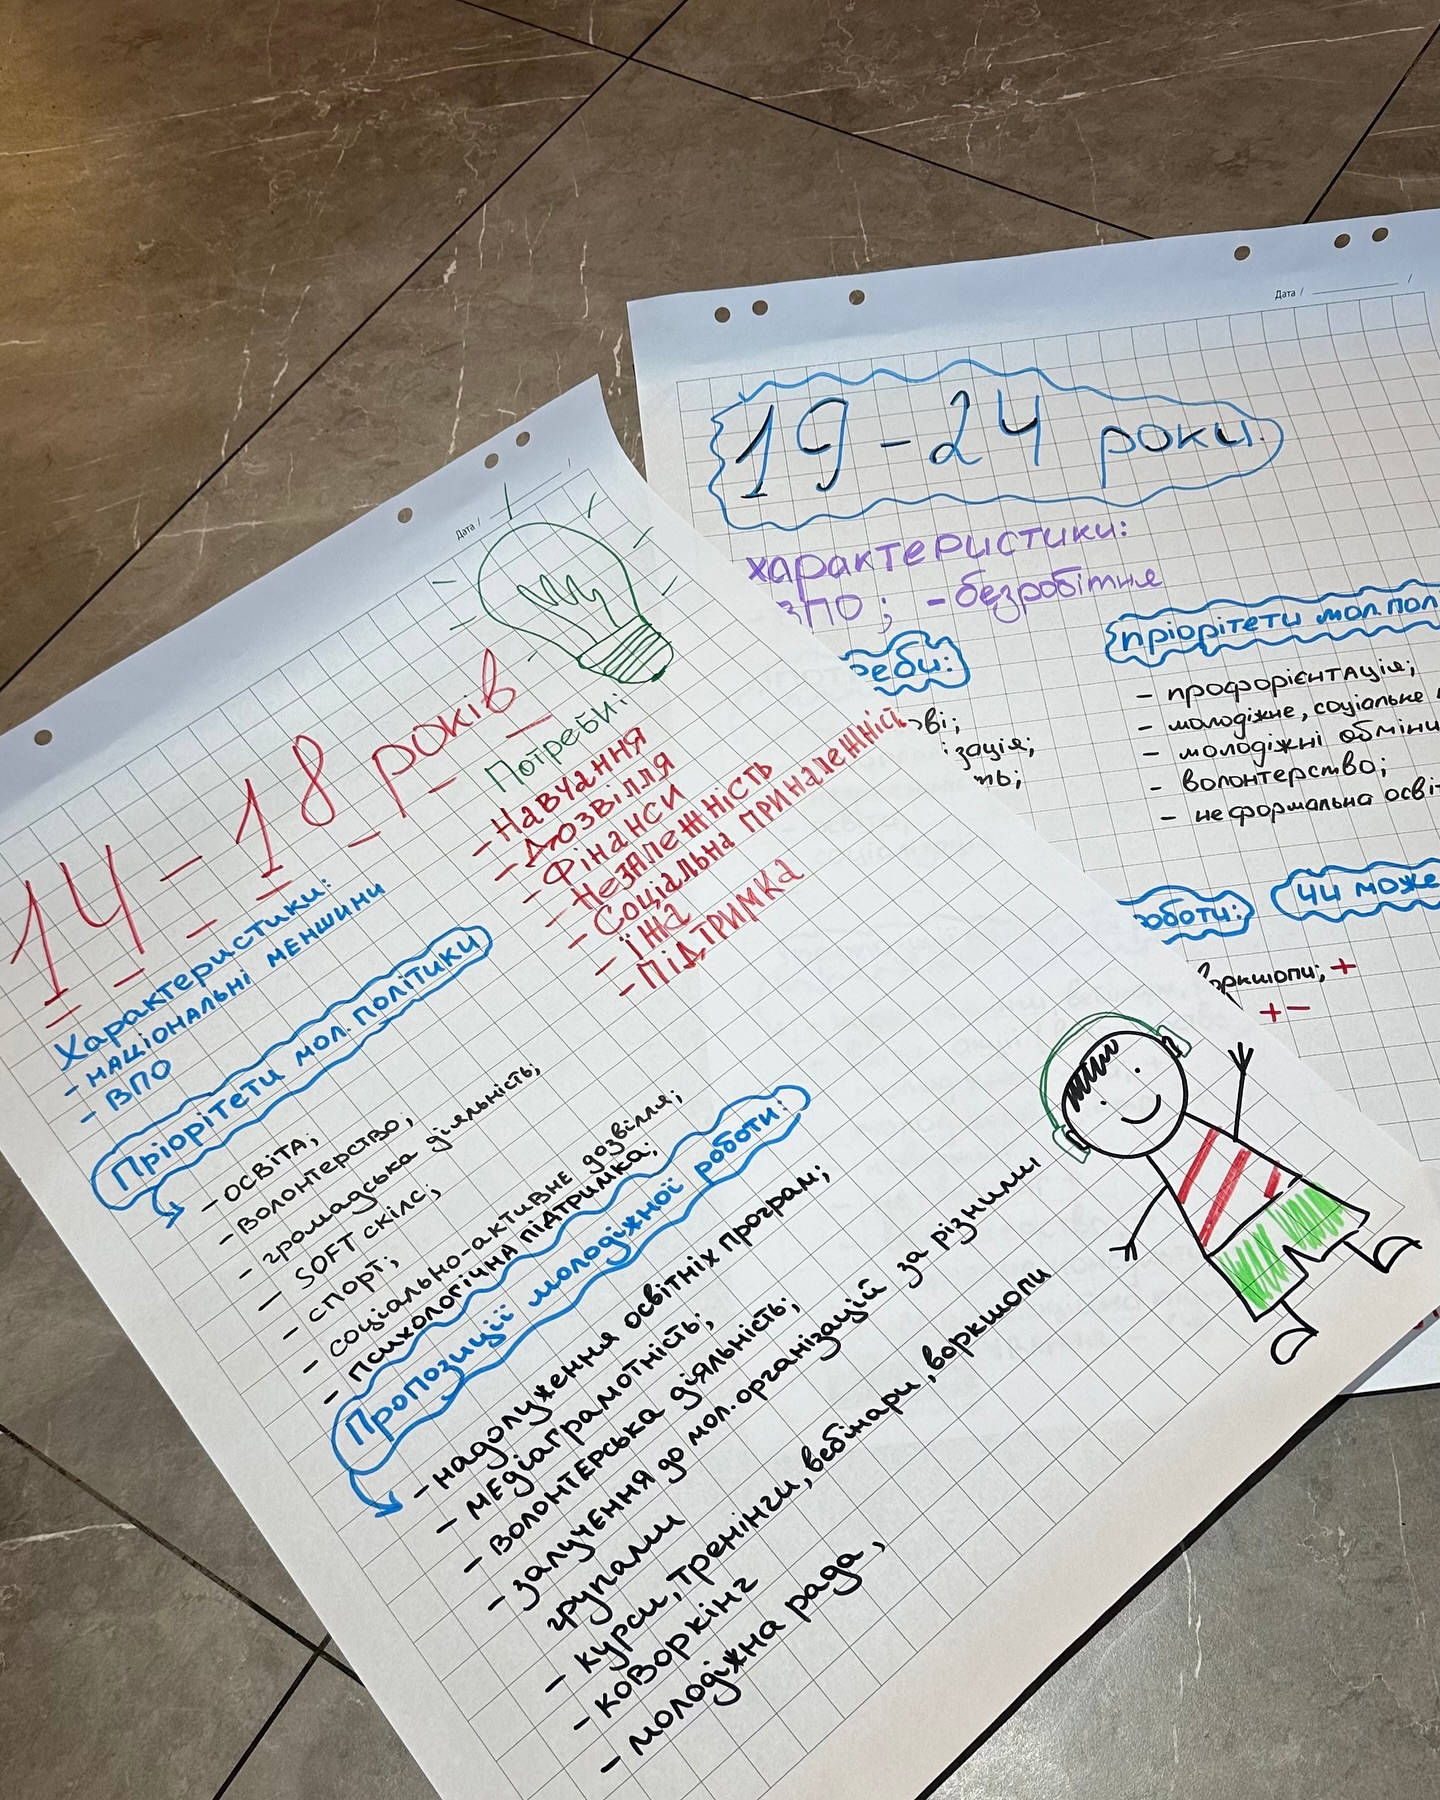 Дата /
14-18 років
Потреби:
- Навчання
- Дозвілля
- Фінанси
- Незалежність
- Соціальна приналежність
- їжа
- Підтримка
Характеристики:
- національні меншини
- ВПО
Пріорітети мол. політики
- освіта;
- волонтерство;
- громадська діяльність;
- SOFT скілс;
- спорт;
- соціально-активне дозвілля;
- психологічна підтримка;
Пропозиції молодіжної роботи:
- надолуження освітніх програм;
- медіаграмотність;
- волонтерська діяльність;
- залучення до мол.організацій за різними
групами
- курси, тренінги, вебінари, воркшопи
- коворкінг
- молодіжна рада,
Дата /
19-24 роки.
характеристики:
ВПО; - безробітня
реби:
ові;
ізація;
ть;
пріорітети мол.пол
- профорієнтація;
- молодіжне, соціальне
- молодіжні обміни
- волонтерство;
- неформальна осві
роботи:
Чи може
воркшопи; +
+-